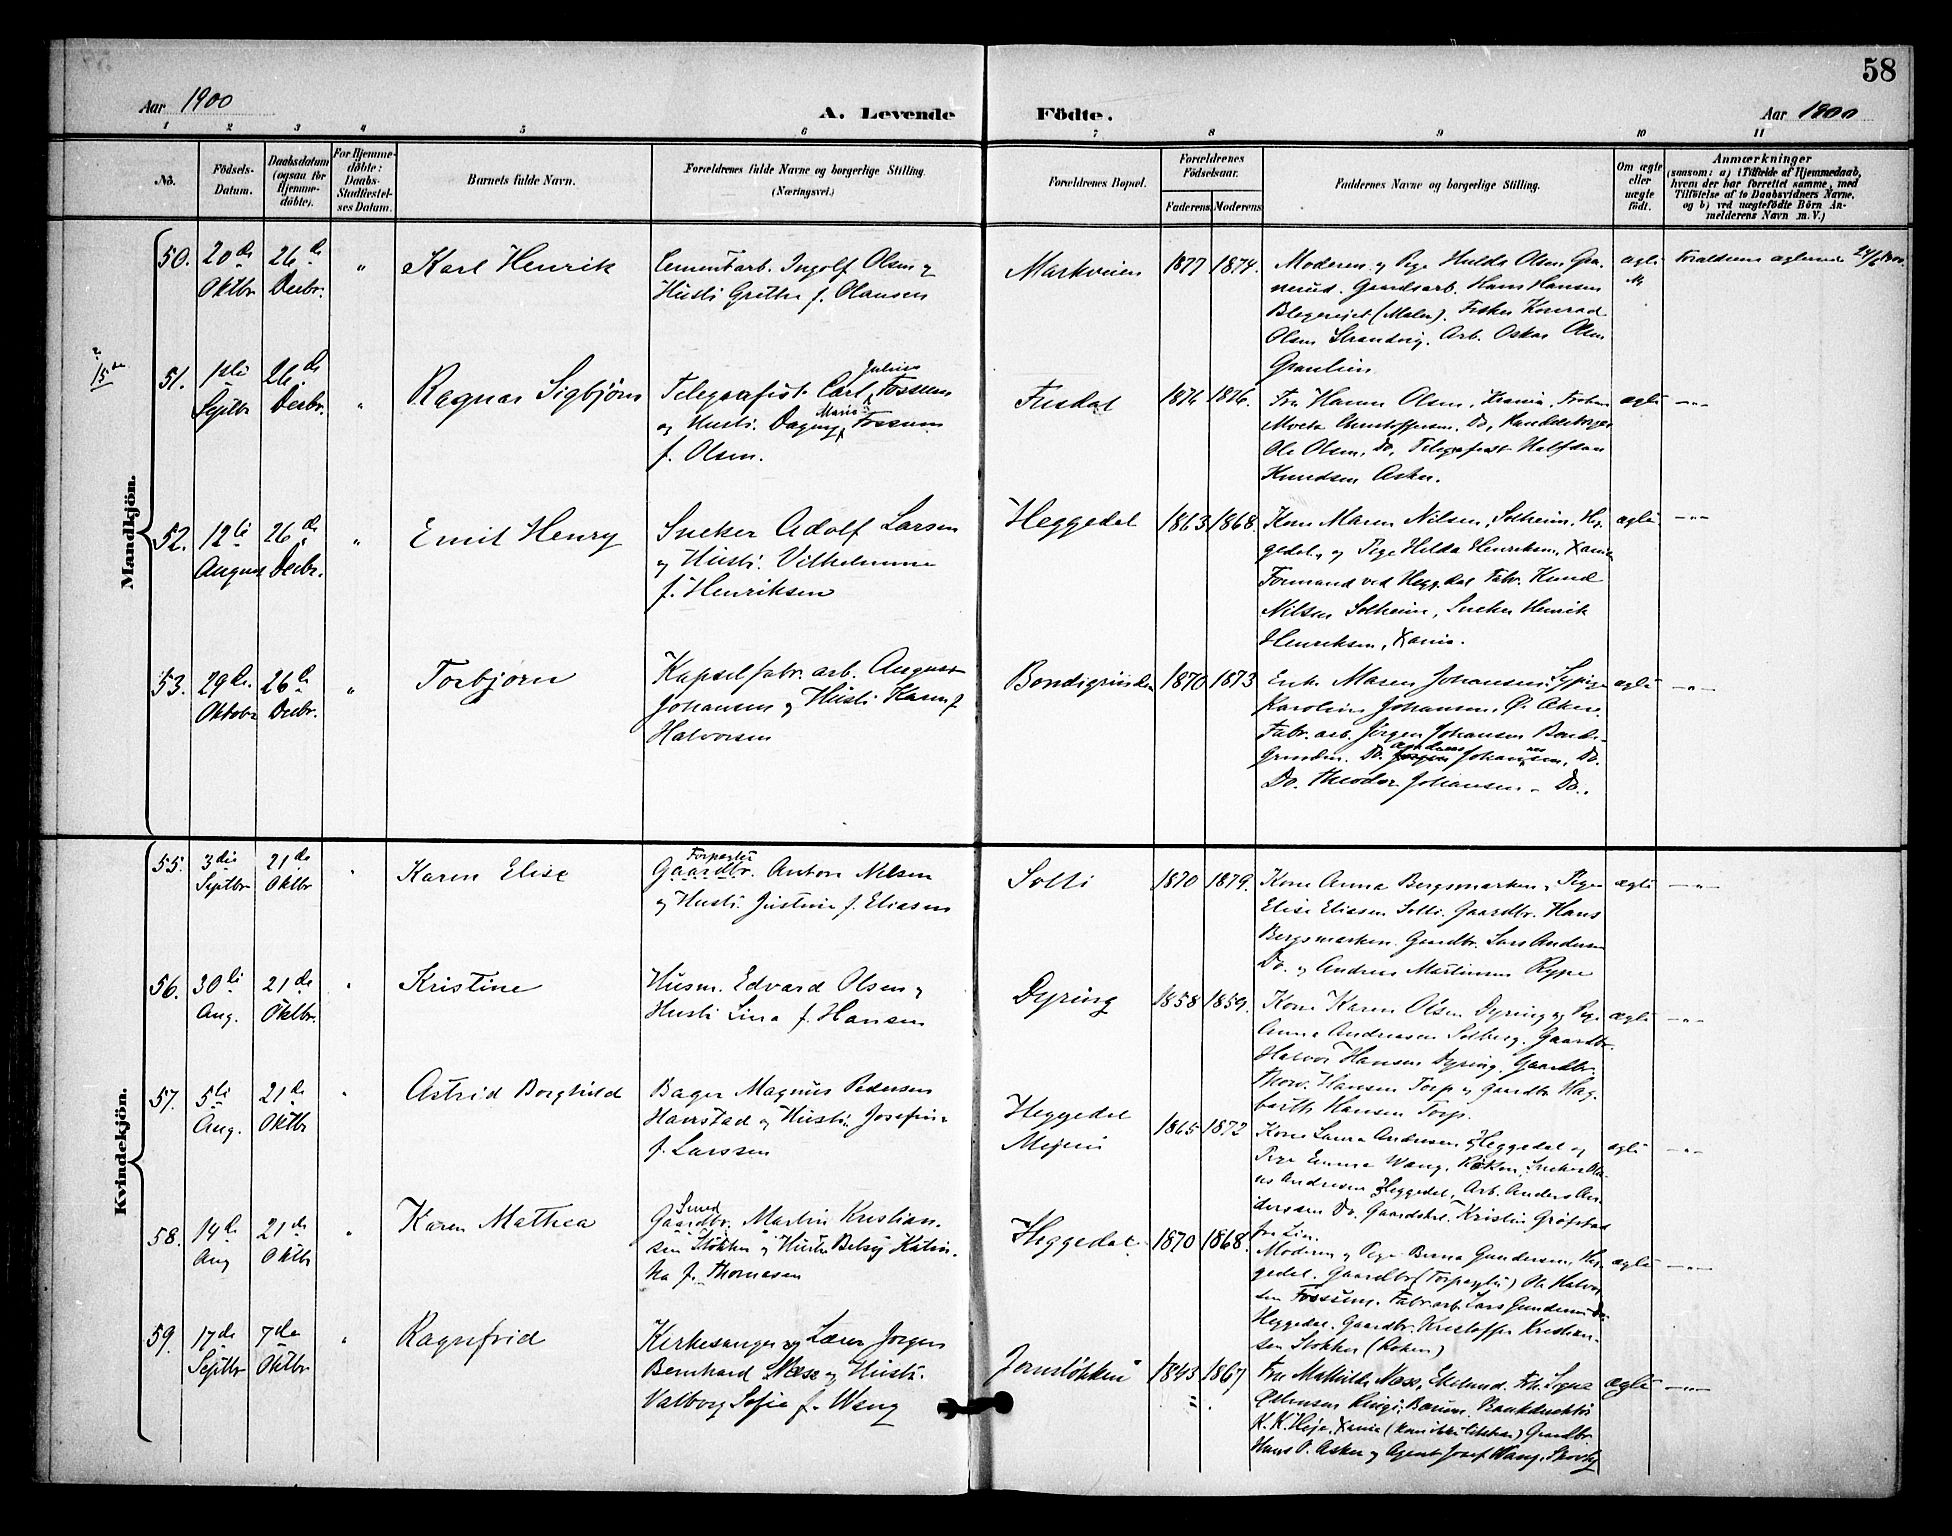 58
Aar 1900
A. Levende
Födte.
Aar 1900
1 2 3 4 5 6 7 8 9 10 11
No.
Födsels-
Datum.
Daabsdatum
(ogsaa for
Hjemme-
döbte).
For Hjemme-
döbte:
Daabs-
Stadfæstel-
ses Datum.
Barnets fulde Navn.
Forældrenes fulde Navne og borgerlige Stilling.
(Næringsvei.)
Forældrenes Bopæl.
Forældrenes
Födselsaar.
Faderens. Moderens.
Faddernes Navne og borgerlige Stilling.
Om ægte
eller
uægte
födt.
Anmærkninger
(saasom: a) i Tilfælde af Hjemmedaab,
hvem der har forrettet samme, med
Tilföielse af to Daabsvidners Navne,
og b) ved uægtefödte Börn An-
melderens Navn m. V.)
Mandkjön.
50.
20de
Oktbr
26de
Decbr.
"
Karl Henrik
Cementarb. Ingolf Olsen og
Hustr. Grethe f. Olausen
Markveien
1877
1874.
Moderen og Pige Hulda Olsen Gra-
nerud. Gaardsarb. Hans Hansen
Blegereiet (Maler). Fisker Konrad
Olsen Strandvig. Arb. Oskar Olsen
Graulien
ægte
15de
51.
1ste
Septbr
26de
Decbr.
"
Ragnar Sigbjørn
Telegrafist Carl Julius Fossum
og Hustr. Dagny Maria Fossum
f. Olsen.
Fusdal
1876.
Fru Hanna Olsen, Krania, Frøken
Christoffersen, Do,
Ole Olsen, Do, Telegrafist Halfdan
Knudsen Asker.
ægte
— " —
52.
12te
August
26de
Decbr.
"
Emil Henry
Snekker Adolf Larsen
og Hustr. Vilhelmine
f. Henriksen
Heggedal
1863
1868.
Kone Maren Nilsen, Solheim, Heg-
gedal, og Pige Hilda Henriksen, Xania
Formand ved Heggedal Fabr. Knud
Nilsen Solheim, Snekker Henrik
Henriksen, Xania.
ægte
— " —
53.
29de
Oktober
26de
Decbr.
"
Torbjørn
Kapselfabr. arb. August
Johansen og Hustr. Hanna f.
Halvorsen
Bondigrunden
1870
1873
Enke Maren Johansen, Sypige
Karoline Johansen, Ø. Aker.
Fabr. arb. Jørgen Johansen Bondi-
Grunden. Do. Andreas Johansen, Do.
Do. Theodor Johansen. Do.
ægte
— " —
Kvindekjön.
55.
3die
Septbr
21de
Oktbr
"
Karen Elise
Forpagter
Gaardbr. Anton Nilsen
og Hustr. Justine f. Eliasen
Solli
1870
1879.
Kone Anna Bergsmarken, Pige
Elise Eliasen Solli. Gaardbr. Hans
Bergsmarken. Gaardbr. Lars Andersen
Do. og Andreas Martinsen Rype
ægte
— " —
56.
30te
Aug.
21de
Oktbr.
"
Kristine
Husm. Edvard Olsen og
Hustr. Lina f. Hansen
Dyring
1858
1859.
Kone Karen Olsen Dyring og Pige
Anna Andreasen Solberg. Gaardbr.
Halvor Hansen Dyring, Gaardbr.
Thorv. Hansen Torp og Gaardbr. Hag-
barth Hansen Torp.
ægte
— " —
57.
5te
Aug.
21de
Oktbr
"
Astrid Borghild
Bager Magnus Pedersen
Haavstad og Hustr. Josefine
f. Larssen
Heggedal
Meieri
1865
1872
Kone Laura Andresen Heggedal og
Pige Emma Wang, Røken, Snekker Ola-
us Andresen Heggedal, Arb. Anders An-
derssen Do. Gaardskrl. Kristin Gröfstad
fra Lier.
ægte
— " —
58.
14de
Aug
21de
Oktbr
"
Karen Mathea
Smed
Gaardbr. Martin Kristian-
sen Stokker og Hustr. Betsy Katin-
ka f. Thomesen
Heggedal
1870
1868.
Moderen og Pige Berna Gundersen, Heg-
gedal. Gaardbr (Forpagter) Ole Halvor-
sen Fossum. Fabr. arb. Lars Gundersen Do
Heggedal. Gaardbr. Kristoffer Kristian-
sen Stokker (Røken)
ægte
— " —
59.
17de
Septbr
7de
Oktbr
"
Ragnfrid
Kirkesanger og Lærer Jørgen
Bernhard Næss og Hustr.
Valborg Sofie f. Wang
Jansløkken
1843
1867
Fru Mathilde Næss, Ekelund. Frk. Signe
Ringi, Bærum. Bankdirektør
K. K. Heje, Xania (kom ikke tilstede) Gaardbr.
Hans O. Asker og Agent Josef Wang, Skovby
ægte
— " —